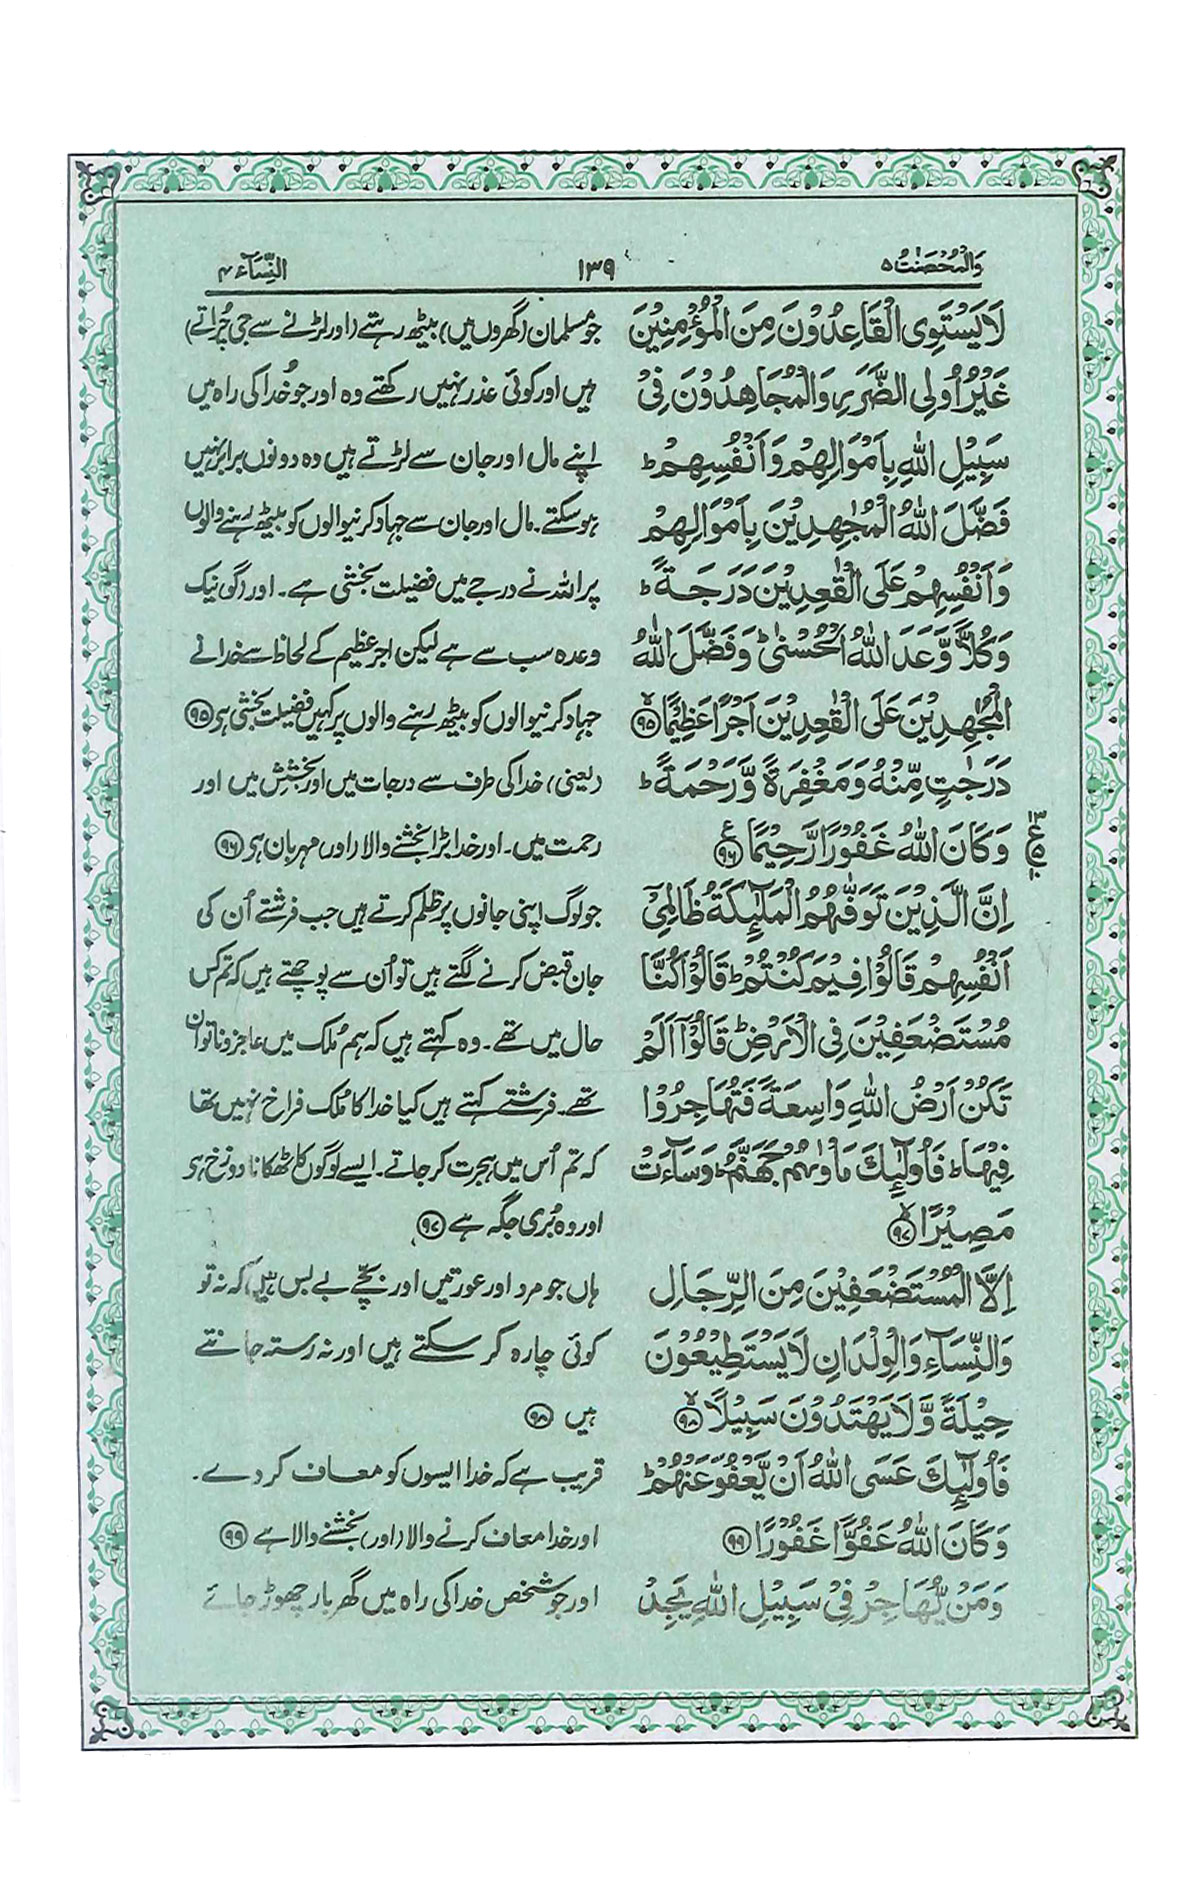 وَالْمُحْصَنٰتُ ۵
۱۳۹
النِّسَآء ۴
لَا يَسْتَوِی الْقَاعِدُوْنَ مِنَ الْمُؤْمِنِيْنَ
غَيْرُ اُولِی الضَّرَرِ وَالْمُجَاهِدُوْنَ فِیْ
سَبِيْلِ اللّٰهِ بِاَمْوَالِهِمْ وَاَنْفُسِهِمْ ؕ
فَضَّلَ اللّٰهُ الْمُجٰهِدِيْنَ بِاَمْوَالِهِمْ
وَاَنْفُسِهِمْ عَلَی الْقٰعِدِيْنَ دَرَجَةً ؕ
وَكُلًّا وَّعَدَ اللّٰهُ الْحُسْنٰیؕ وَفَضَّلَ اللّٰهُ
الْمُجٰهِدِيْنَ عَلَی الْقٰعِدِيْنَ اَجْرًا عَظِيْمًا ۙ﴿۹۵﴾
دَرَجٰتٍ مِّنْهُ وَمَغْفِرَةً وَّرَحْمَةً ؕ
وَكَانَ اللّٰهُ غَفُوْرًا رَّحِيْمًا ﴿۹۶﴾ ع
۱۳ ع ۵ ۱۰
اِنَّ الَّذِيْنَ تَوَفّٰهُمُ الْمَلٰٓئِكَةُ ظَالِمِیْٓ
اَنْفُسِهِمْ قَالُوْا فِيْمَ كُنْتُمْ ؕ قَالُوْا كُنَّا
مُسْتَضْعَفِيْنَ فِی الْاَرْضِ ؕ قَالُوْٓا اَلَمْ
تَكُنْ اَرْضُ اللّٰهِ وَاسِعَةً فَتُهَاجِرُوْا
فِيْهَا ؕ فَاُولٰٓئِكَ مَاْوٰىهُمْ جَهَنَّمُ ؕ وَسَآءَتْ
مَصِيْرًا ۙ﴿۹۷﴾
اِلَّا الْمُسْتَضْعَفِيْنَ مِنَ الرِّجَالِ
وَالنِّسَآءِ وَالْوِلْدَانِ لَا يَسْتَطِيْعُوْنَ
حِيْلَةً وَّلَا يَهْتَدُوْنَ سَبِيْلًا ۙ﴿۹۸﴾
فَاُولٰٓئِكَ عَسَی اللّٰهُ اَنْ يَّعْفُوَ عَنْهُمْ ؕ
وَكَانَ اللّٰهُ عَفُوًّا غَفُوْرًا ﴿۹۹﴾
وَمَنْ يُّهَاجِرْ فِیْ سَبِيْلِ اللّٰهِ يَجِدْ
جو مسلمان (گھروں میں) بیٹھ رہتے (اور لڑنے سے جی چراتے)
ہیں اور کوئی عذر نہیں رکھتے وہ اور جو خدا کی راہ میں
اپنے مال اور جان سے لڑتے ہیں وہ دونوں برابر نہیں
ہوسکتے۔ مال اور جان سے جہاد کرنیوالوں کو بیٹھ رہنے والوں
پر اللہ نے درجے میں فضیلت بخشی ہے۔ اور (گو) نیک
وعدہ سب سے ہے لیکن اجر عظیم کے لحاظ سے خدا نے
جہاد کرنیوالوں کو بیٹھ رہنے والوں پر کہیں فضیلت بخشی ہی ﴿۹۵﴾
(یعنی) خدا کی طرف سے درجات میں اور بخشش میں اور
رحمت میں۔ اور خدا بڑا بخشنے والا (اور) مہربان ہی ﴿۹۶﴾
جو لوگ اپنی جانوں پر ظلم کرتے ہیں جب فرشتے اُن کی
جان قبض کرنے لگتے ہیں تو اُن سے پوچھتے ہیں کہ تم کس
حال میں تھے۔ وہ کہتے ہیں کہ ہم مُلک میں عاجز و ناتواں
تھے۔ فرشتے کہتے ہیں کیا خدا کا مُلک فراخ نہیں تھا
کہ تم اُس میں ہجرت کر جاتے۔ ایسے لوگوں کا ٹھکانا دوزخ ہی
اور وہ بُری جگہ ہے ﴿۹۷﴾
ہاں جو مرد اور عورتیں اور بچّے بے بس ہیں کہ نہ تو
کوئی چارہ کر سکتے ہیں اور نہ رستہ جانتے
ہیں ﴿۹۸﴾
قریب ہے کہ خدا ایسوں کو معاف کردے۔
اور خدا معاف کرنے والا (اور) بخشنے والا ہے ﴿۹۹﴾
اور جو شخص خدا کی راہ میں گھر بار چھوڑ جائے